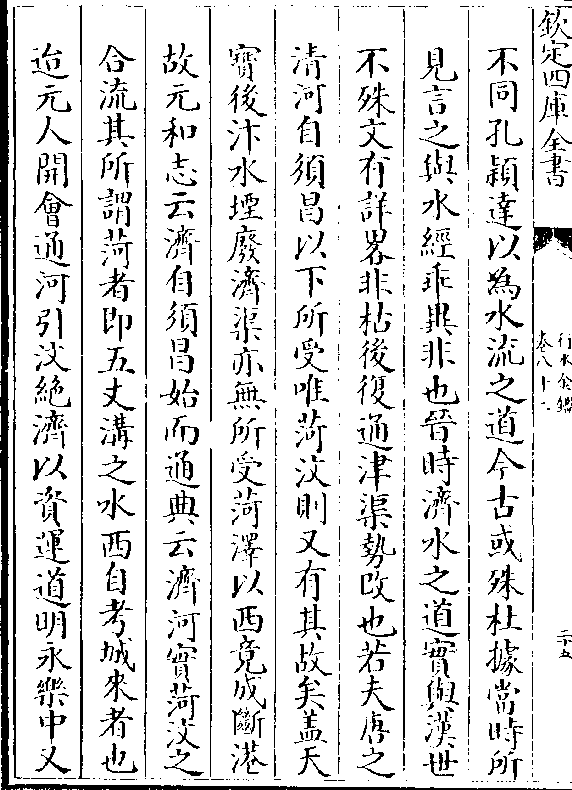 欽定四庫全書
行水金鑑
卷八十二
二十五
不同孔穎達以為水流之道今古或殊杜據當時所
見言之與水經乖異非也晉時濟水之道實與漢世
不殊文有詳畧非枯後復通津渠勢改也若夫唐之
清河自須昌以下所受唯菏汶則又有其故矣蓋天
寶後汴水堙廢濟渠亦無所受菏澤以西竟成斷港
故元和志云濟自須昌始而通典云濟河實菏汶之
合流其所謂菏者即五丈溝之水西自考城來者也
迨元人開會通河引汶絕濟以資運道明永樂中又